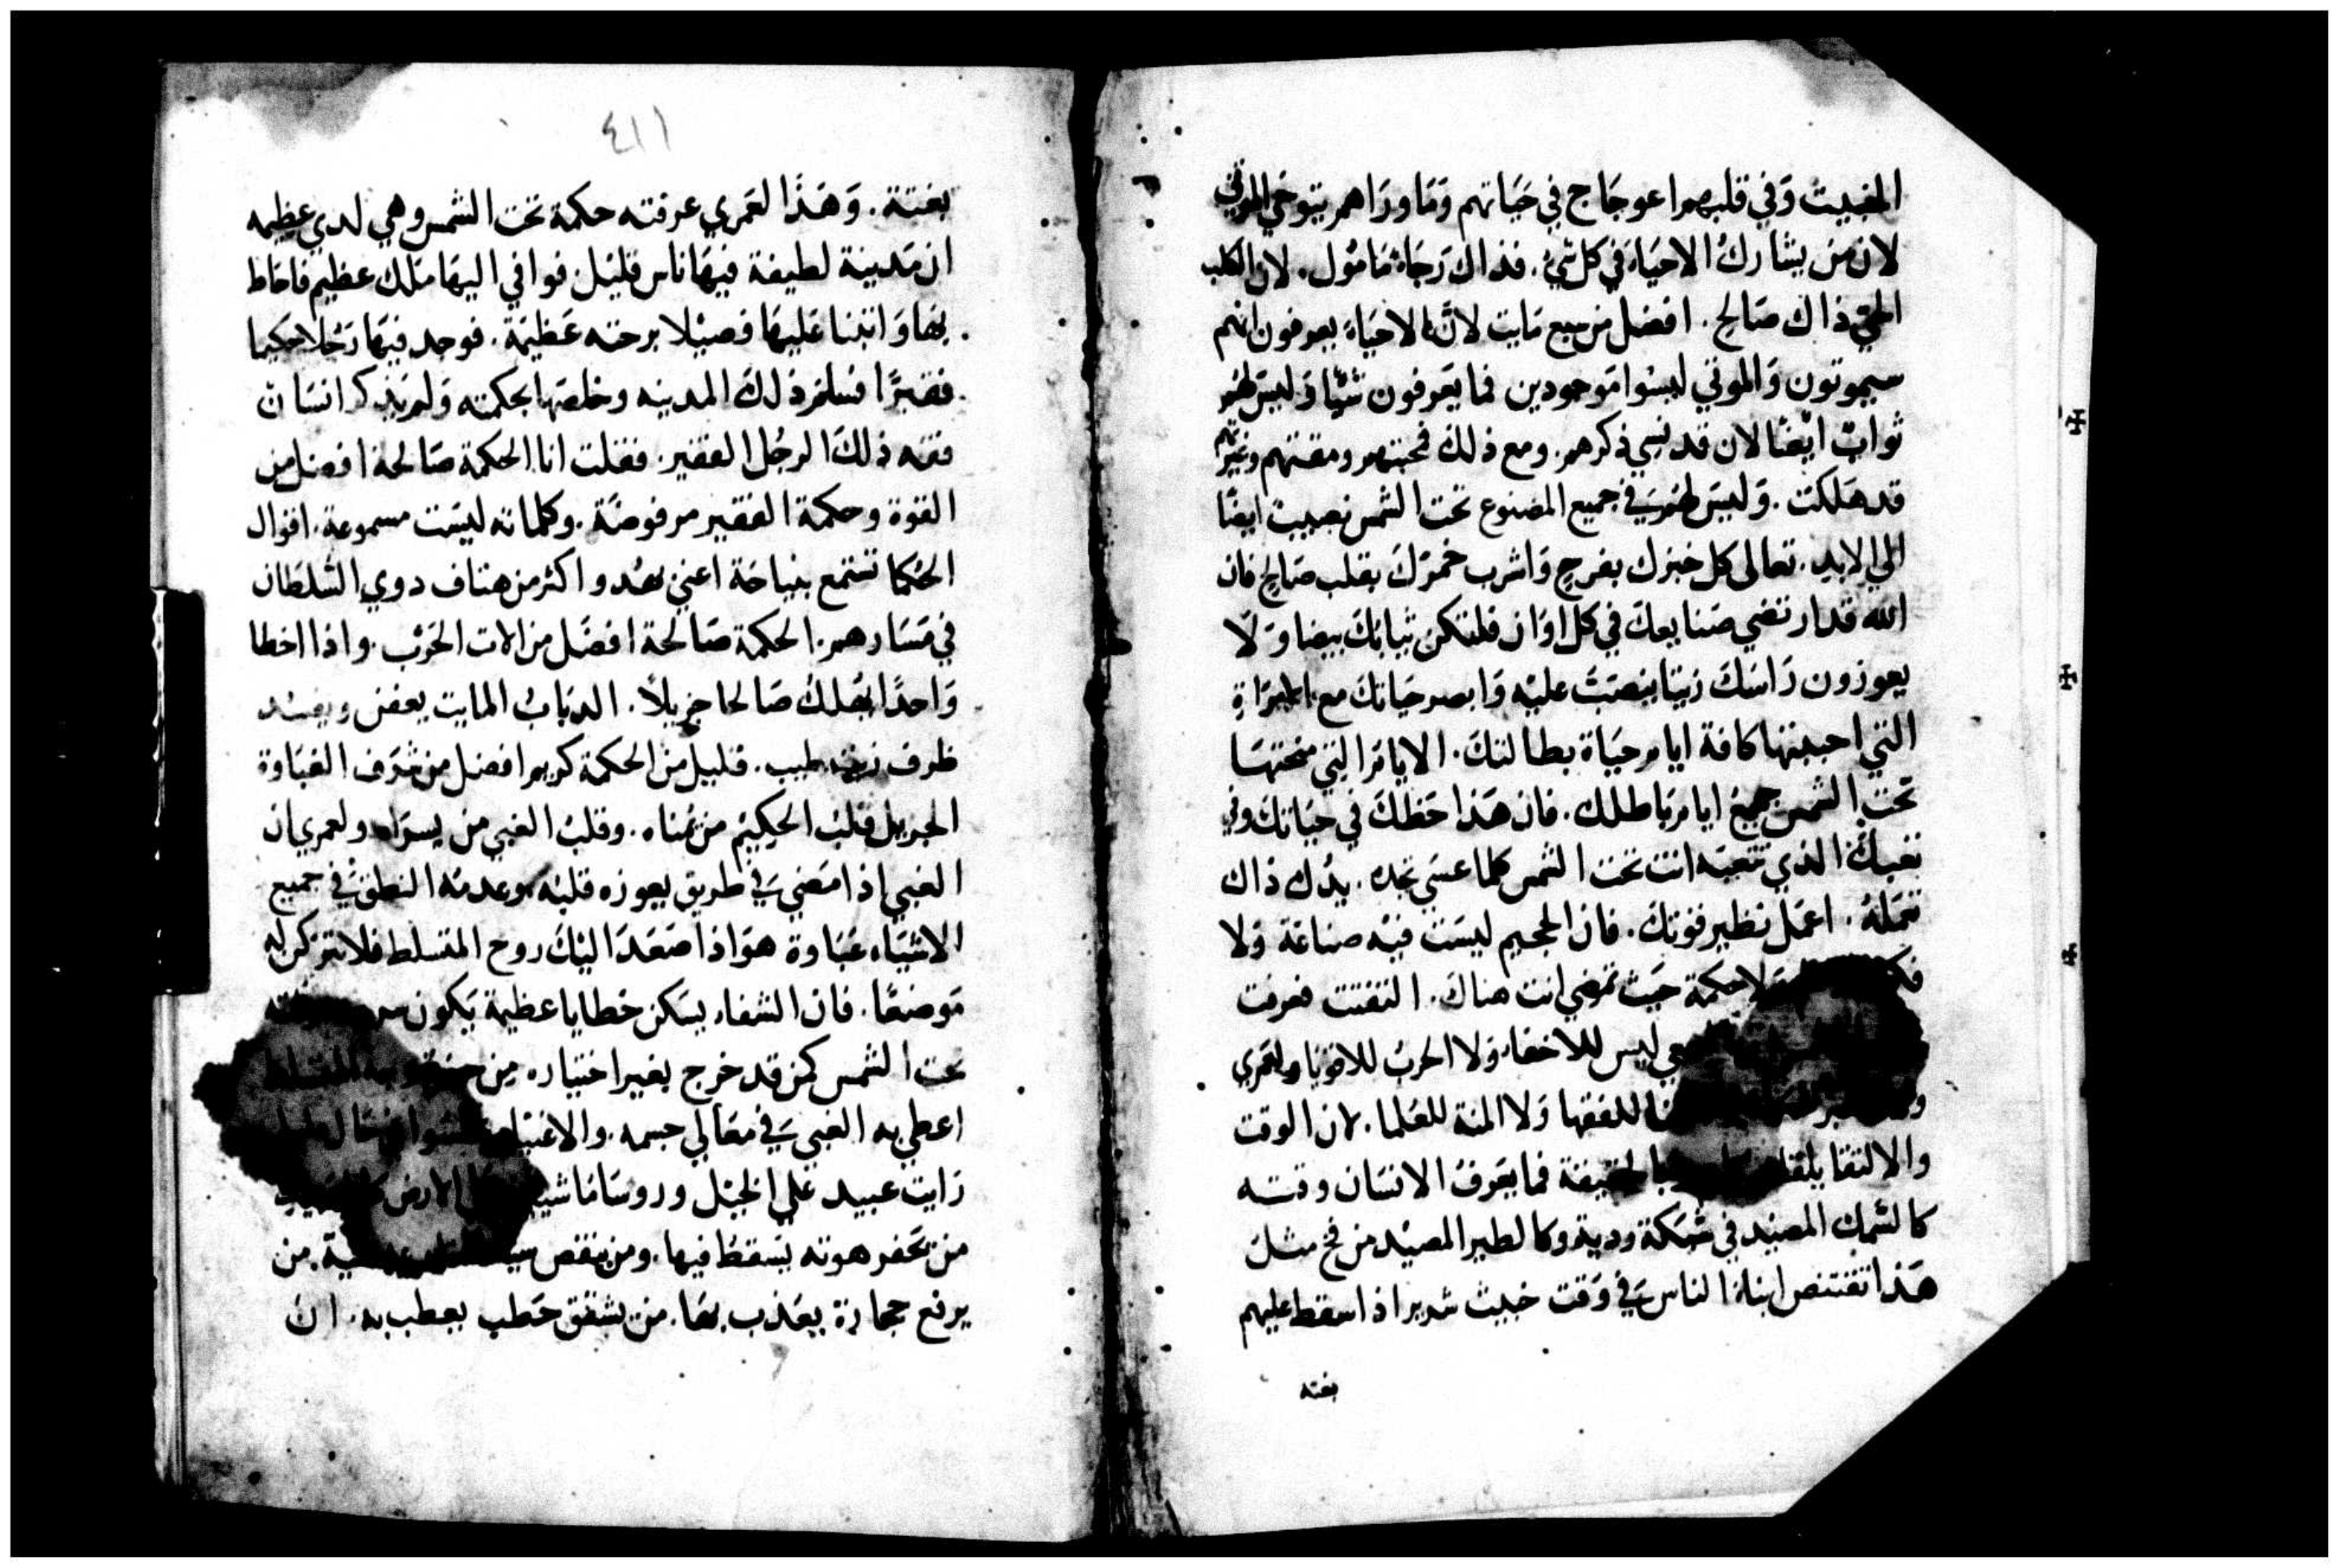 الخبيث وَفي قلبهم اعوجَاج في حَياتهم وَمَا ورَاهم يتوخي الموتي
لان من يشارك الاحيَاء في كل شيٍ. فذاك رَجَاءً مَامُول. لان الكلب
الحيّ ذاك صَالح. افضل من سبع مَايت لانّ الاحيَاء يعرفون انهم
سيموتون وَالموتي ليسُوا مَوجودين فما يَعرفون شيًّا وَليسَ لهم
ثوابٌ ايضًا لان قد نسي ذكرهم. ومع ذلك فمحبتهم ومقتهم وغيرتهم
قد هَلكت. وَليسَ لهم في جميع المصنوع تحت الشمس نصيب ايضًا
الي الابد. تعالى كل خبزك بفرحٍ وَاشرب خمرَك بقلب صَالح فان
الله قد ارتضي صَنايعك في كل اوَان فلتكن ثيابك بيضا وَلَا
يعوزون رَاسَكَ زيتا ينصَبّ عليْه وَابصر حيَاتك مع المراةِ
التي احببتها كافة ايام حيَاة بطالتكَ. الايام التي منحتهَا
تحت الشمس جميع ايام بَاطلك. فان هَذا حَظكَ في حيَاتك وفي
تعبك الذي تتعبَه انت تحت الشمس كلما عسَي تجده. يدُك ذاك
تعمَلهُ. اعمَل نظير قوتك. فان الجحيم ليسَت فيْه صناعَة وَلا
وَلا حكمة حيَث تمضي انت هناك. التفتت فعرفت
ليس للاخفاء وَلا الحربُ للاقويَا ولعَمري
للفقها وَلا المنة للعلما. لان الوقت
والالتقا فما يَعرفُ الانسَان وقته
كالسَّمك المصيْد في شبكة ردية وكالطير المصيْد من فخ مثل
هَذا تقتنص ابناءُ الناس في وَقت خبيث شرير اذا سقط عليهم
بغته
٤١١
بغتة. وَهَذا لعَمري عرفته حكمة تحت الشمس وهي لدي عظيمه
ان مَدينة لطيفة فيهَا ناس قليْل فوافي اليهَا ملك عظيم فاحَاط
بهَا وَابتنا عَليهَا فصيْلا برحته عَظيمَة. فوجد فيهَا رَجُلا حكيما
فقيرًا فسلم ذلك المدينه وخلصَها بحكمته وَلم يذكر انسَان
فقه ذلكَ الرجُل الفقير. فقلت انا الحكمة صَالحة افضل من
القوة وحكمة الفقير مرفوضَة. وكلماته ليسَت مسموعة. اقوال
الحكما تستمع بنياحَة اعني بهُدو اكثر من هتاف دوي السّلطان
في مَسَارهم. الحكمة صَالحة افضَل من الات الحَرب. واذا اخطا
وَاحدًا يهلك صَالحا جزيلاً. الدبَابُ المايت يعفن ويفسد
ظرف زيت طيب. قليل من الحكمة كريم افضل من شرَف الغبَاوة
الجزيل قلبُ الحكيْم من يمناه. وقلبُ الغبي من يسرَاه ولعمري ان
الغبي اذا مَضيَ في طريق يعوزه قلبُه وعدمُه النطق في جميع
الاشيَاء غبَاوة هوَ اذا صَعَدَ اليْك روح المتسلط فلا تترك له
مَوضعًا. فان الشفاء يسَكن خطايا عظيمة يَكون
تحت الشمس كمن قد خرج بغير اختياره من
اعطي به الغبي في معَالي جسمه. والاغنيَا
رَايت عبيد عَلي الخيْل وروسَا مَاشيين الارض
من يَحفر هوته يسَقطُ فيها. ومن ينقض حية. من
يرفع حجارة يعَذب بهَا. من يشقق حَطب يعطب به. ان